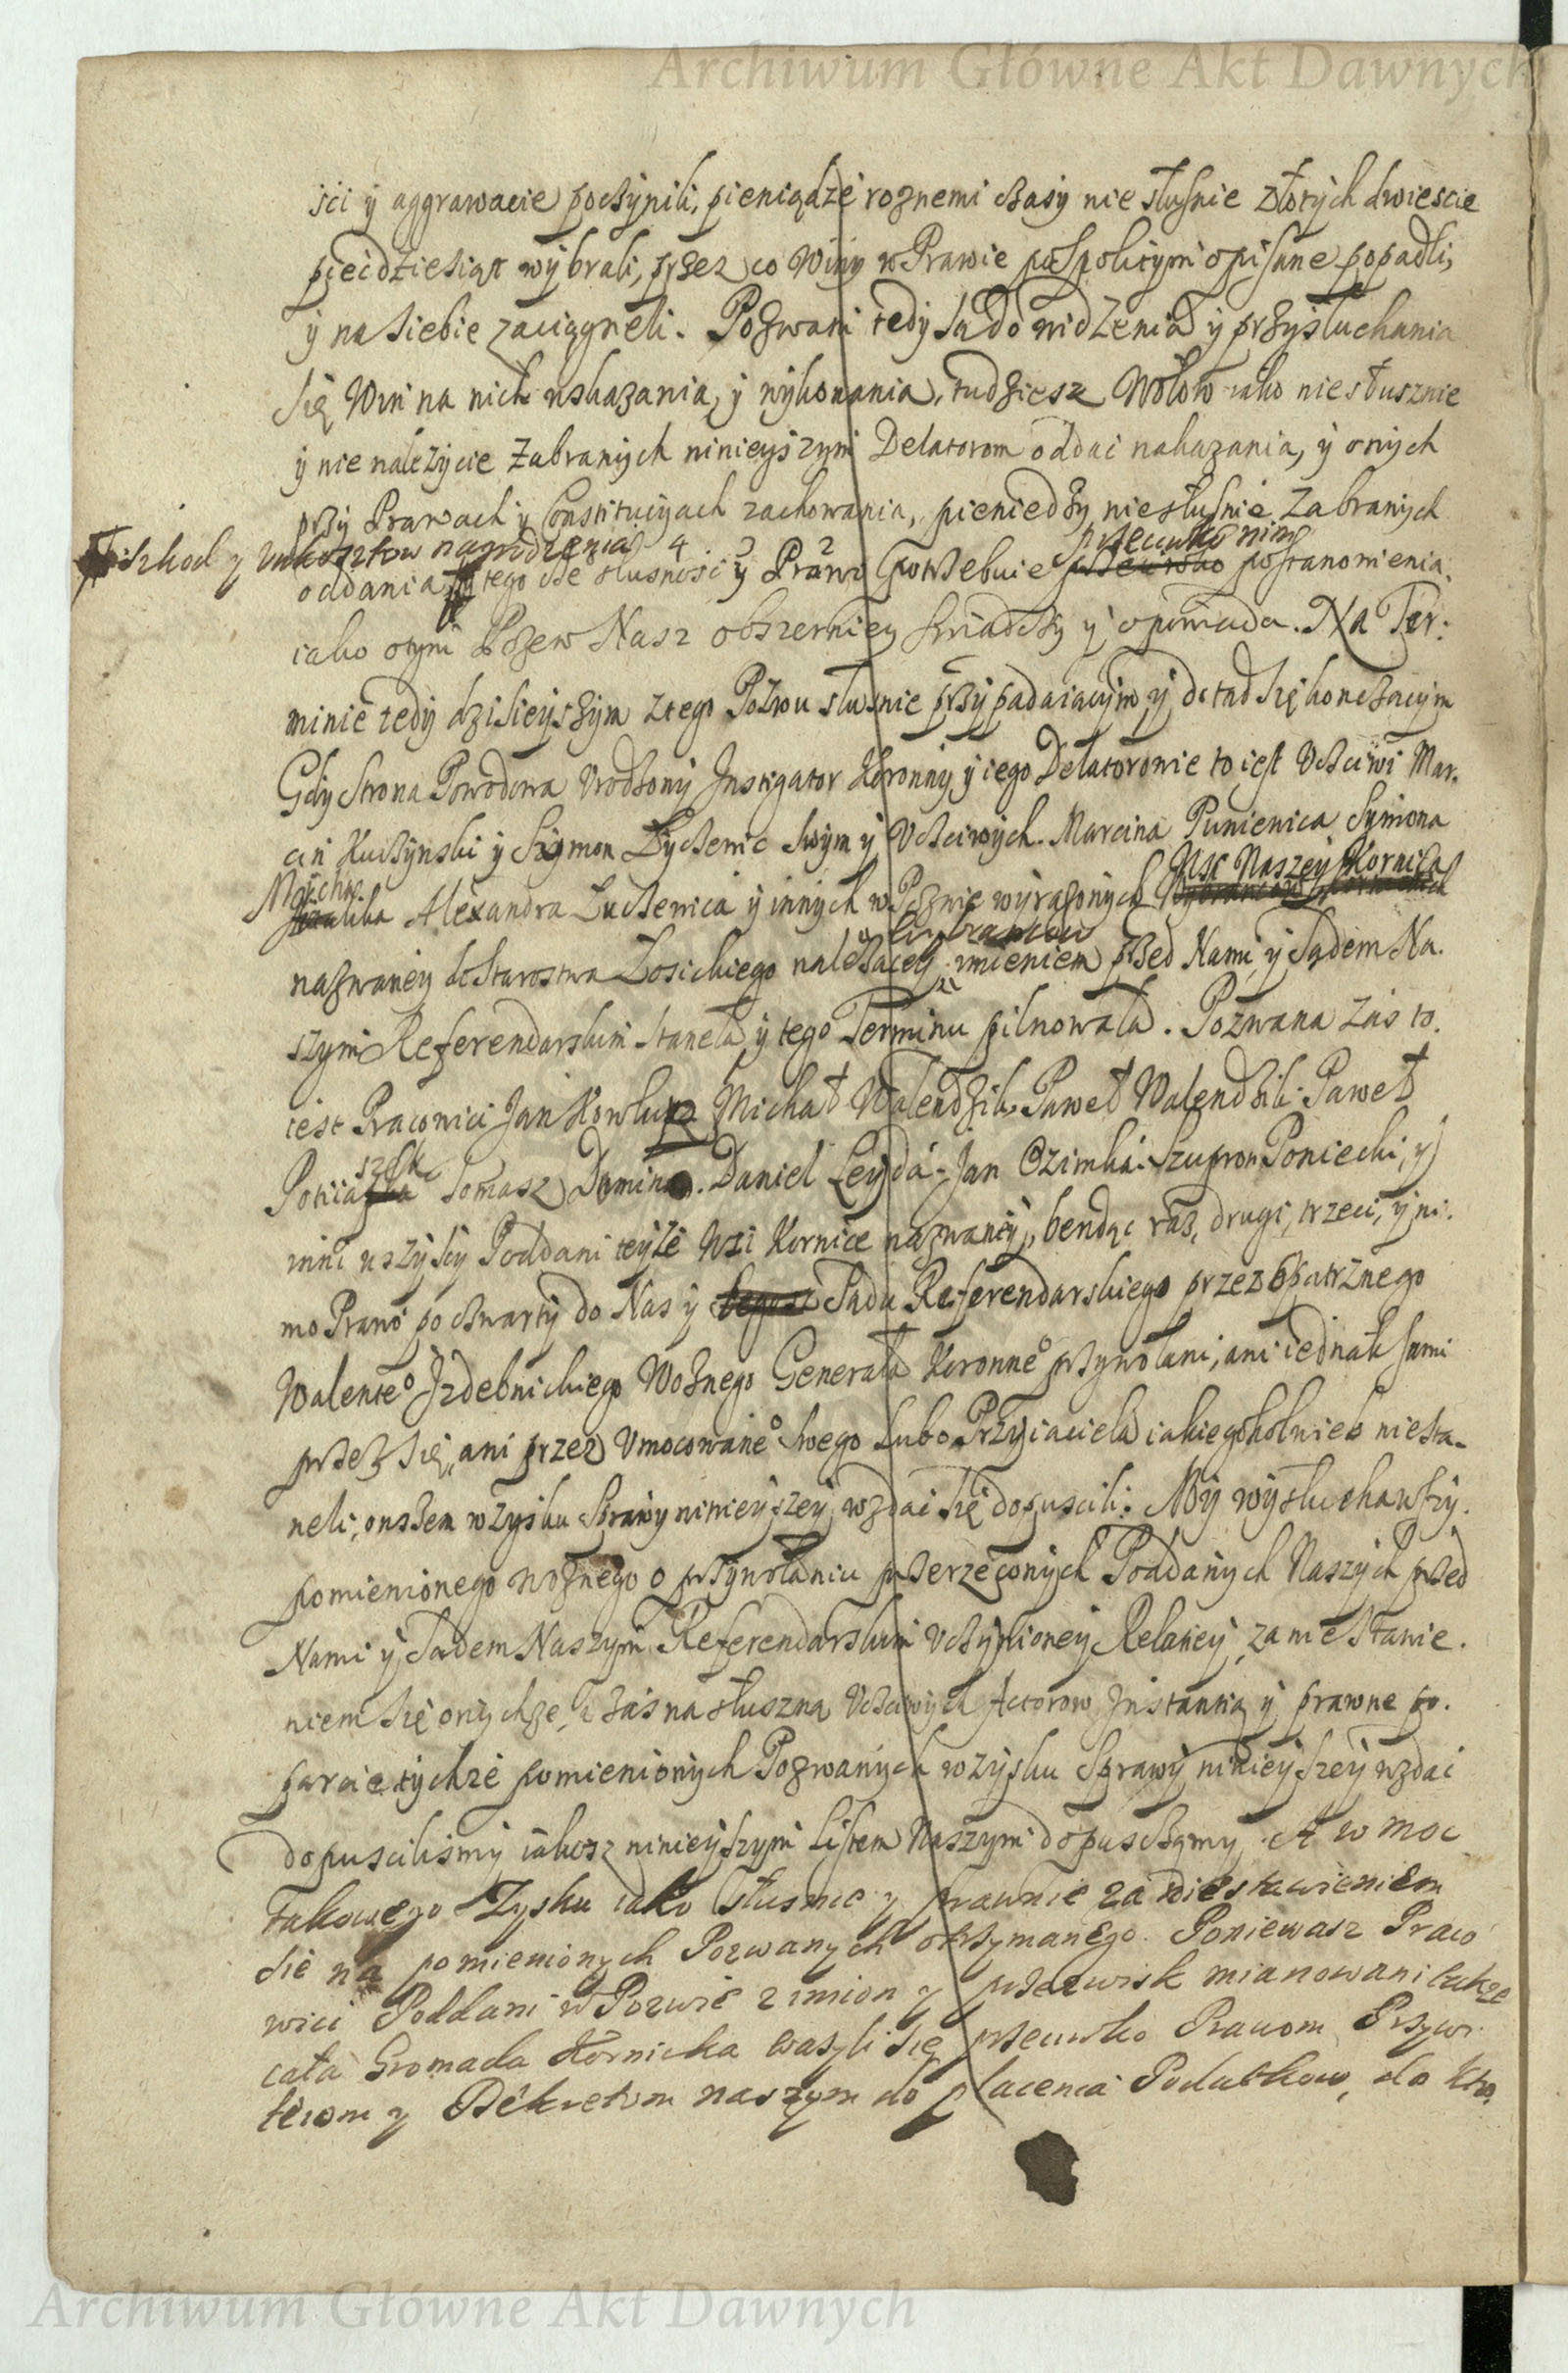 Archiwum Główne Akt Dawnych
ści y aggrawacie poczynili, pieniądze roznemi czasy nie słusnie złotych dwiescie
pięcdziesiąt wybrali, przez co Winy w Prawie pospolitym opisane popadli,
y na siebie zaciągneli. Pozwani tedy są do widzenia y przysłuchania
się Win na nich wskazania, y wykonania, tudziesz Wołow iako niesłusznie
y nie nalezycie zabranych ninieyszym Delatorom oddać nakazania, y onych
przy Prawach y Constitucyach zachowania, pieniedzy niesłusnie zabranych
szkod y wukosztow nagrodzenia 4 3 2 przeciwko nim
oddania tego cze slusność y Prawo potrzebuie przeciwko postanowienia.
iako o tym Pozew Nasz obszerniey swiadczy y opowiada. Na Ter:
minie tedy dzisieyszym z tego Pozwu slusnie przypadaiącym y dotąd się konczącym
Gdy Strona Powodowa Urodzony Instigator Koronny y iego Delatorowie to iest Uczciwi Mar.
cin Kuczynski y Szymon Zyczewic swym y Uczciwych Marcina Puniewica Symona
Wsi Naszey Kornica
Alexandra Luczewica y innych w Pozwie wyrazonych
nazwaney do Starostwa Łosickiego nalezącey imieniem przed Nami y Sądem Na.
szym Referendarskim staneła y tego Terminu pilnowała. Pozwana zas to.
iest Pracowici Jan Michał Walendzik, Paweł Walendzik Paweł
Tomasz Daniel Leyda Jan Ozimka Poniecki, y
inni wszyscy Poddani teyże Wsi Kornice nazwaney, bendąc raz, drugi, trzeci, y ni.
mo Prawo po czwarty do Nas y Sądu Referendarskiego przez Opatrznego
Walenteo Izdebnickiego Woznego Generała Koronneo przywołani, ani iednak sami
przez się, ani przez Umocowaneo swego lubo Przyiaciela iakiegokolwiek niesta-
neli, onszem w zysku Sprawy ninieyszey wzdać się dopuscili. My wysłuchawszy.
pomienionego woznego o przywołaniu przerzeczonych Poddanych Naszych przed
Nami y Sądem Naszym Referendarskim Uczynioney Relaciey, za niestawie.
niem się onychze, a zas na słuszną Uczciwych Actorow Instantią y prawne po.
parcie tychze pomienionych Pozwanych w zysku Sprawy ninieyszey wzdać
dopuscilismy iakosz ninieyszym Listem Naszym dopusczamy. A w moc
takowego Zysku iako słusnie y prawnie za niestawieniem
sie na pomienionych Pozwanych otrzymanego. Poniewasz Praco
wici Poddani w Pozwie z imion y przezwisk mianowani takze
cała Gromada Kornicka wazyli się przeciwko Prawom Przywi
leiom y Dekretom naszym do płacenia Podatkow, do kto
Archiwum Główne Akt Dawnych